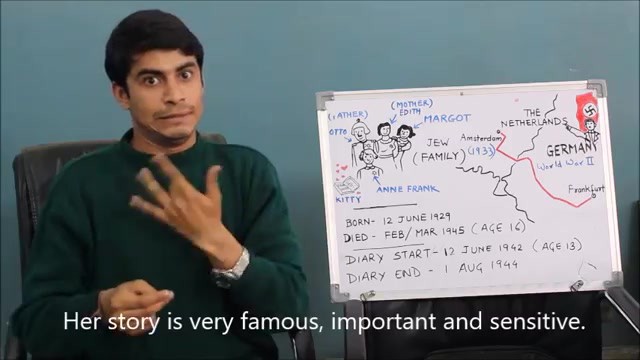 (FATHER)
OTTO
(MOTHER)
EDITH
MARGOT
JEW
(FAMILY)
ANNE FRANK
KITTY
THE
NETHERLANDS
Amsterdam
(1933)
GERMANY
World War II
Frankfurt
BORN- 12 JUNE 1929
DIED - FEB/MAR 1945 (AGE 16)
DIARY START- 12 JUNE 1942 (AGE 13)
DIARY END - 1 AUG 1944
Her story is very famous, important and sensitive.